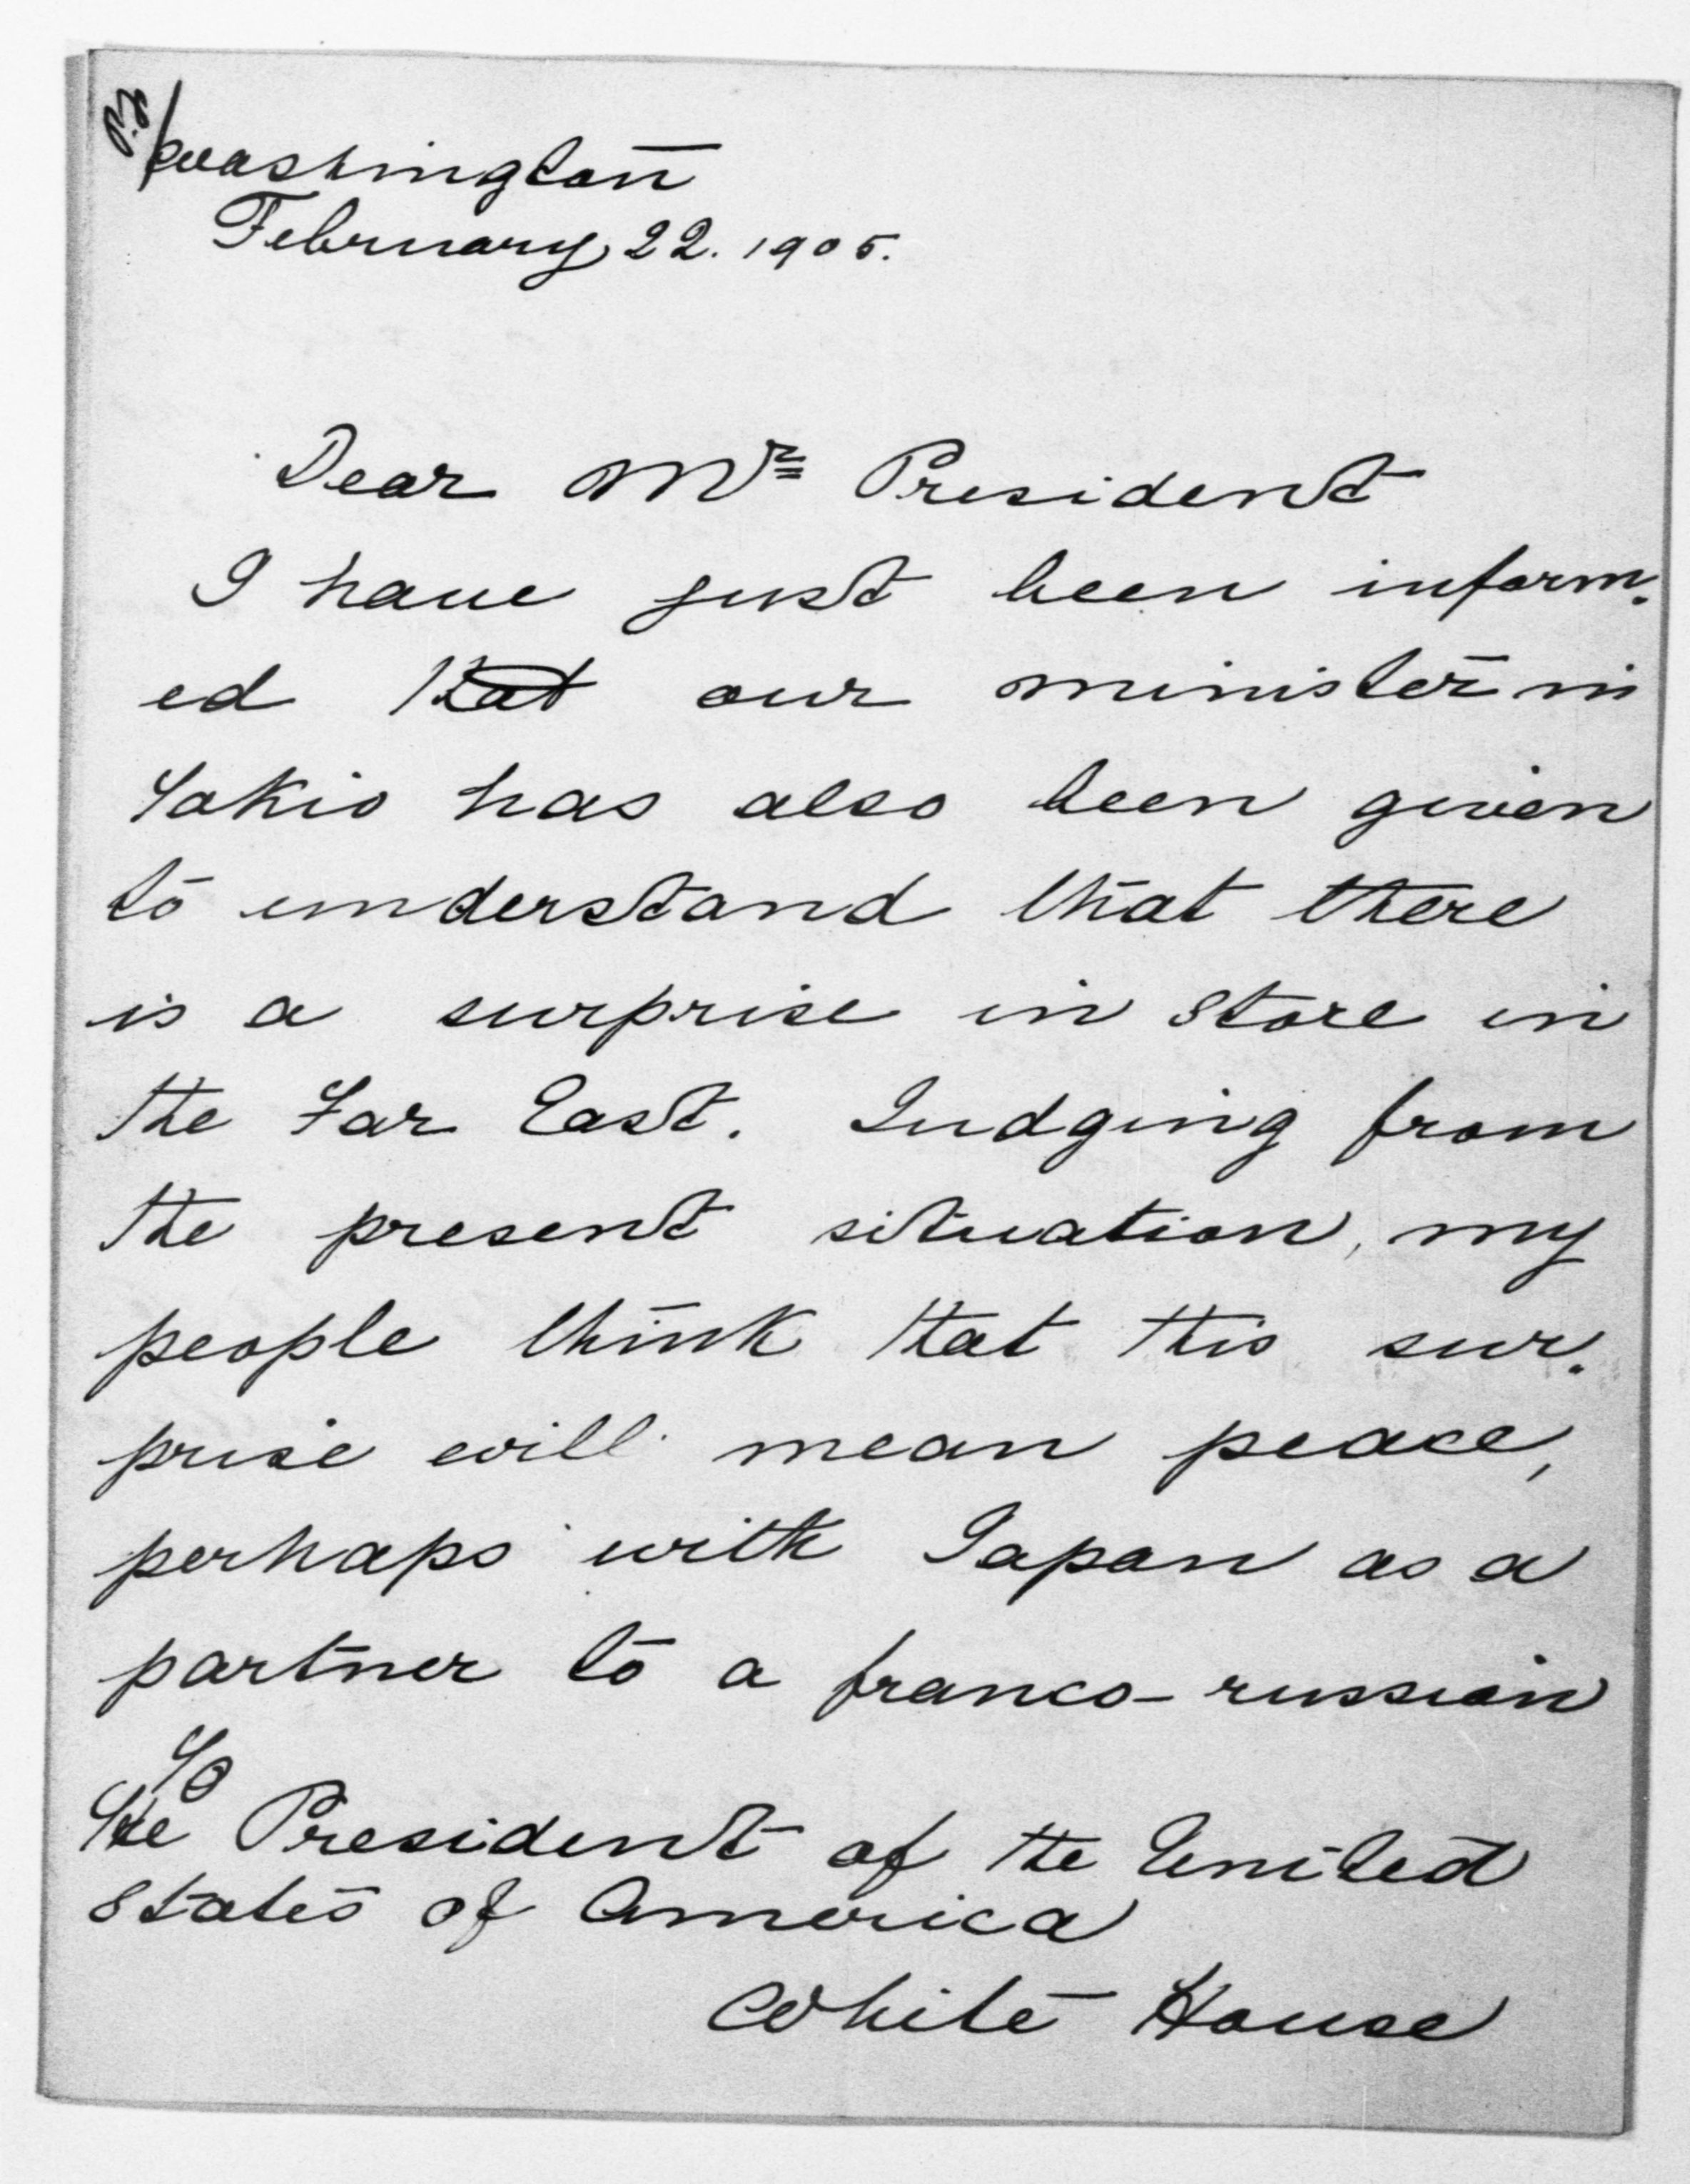 Washington
February 22. 1905.
Dear Mr= President
I have just been inform-
ed that our minister in
Tokio has also been given
to understand that there
is a surprise in store in
the Far East. Judging from
the present situation, my
people think that this sur-
prise will mean peace,
perhaps with Japan as a
partner to a franco-russian
To
The President of the United
States of America
White House